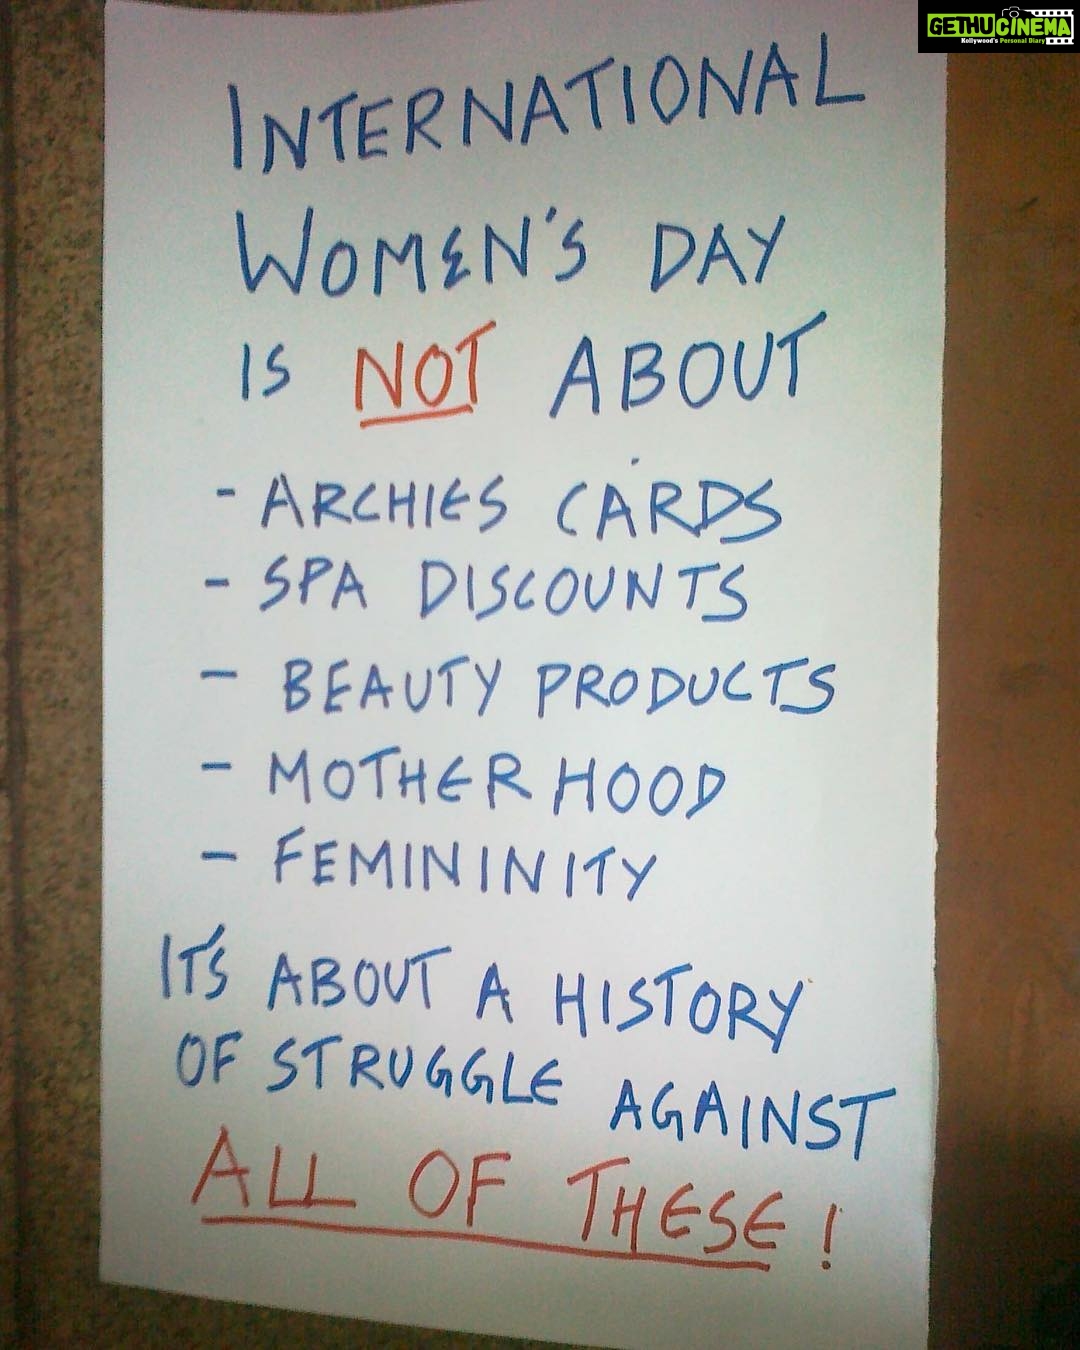 GETHUCINEMA
Kollywood's Personal Diary
INTERNATIONAL
WOMEN'S DAY
IS NOT ABOUT
- ARCHIES CARDS
- SPA DISCOUNTS
- BEAUTY PRODUCTS
- MOTHERHOOD
- FEMININITY
IT'S ABOUT A HISTORY
OF STRUGGLE AGAINST
ALL OF THESE!